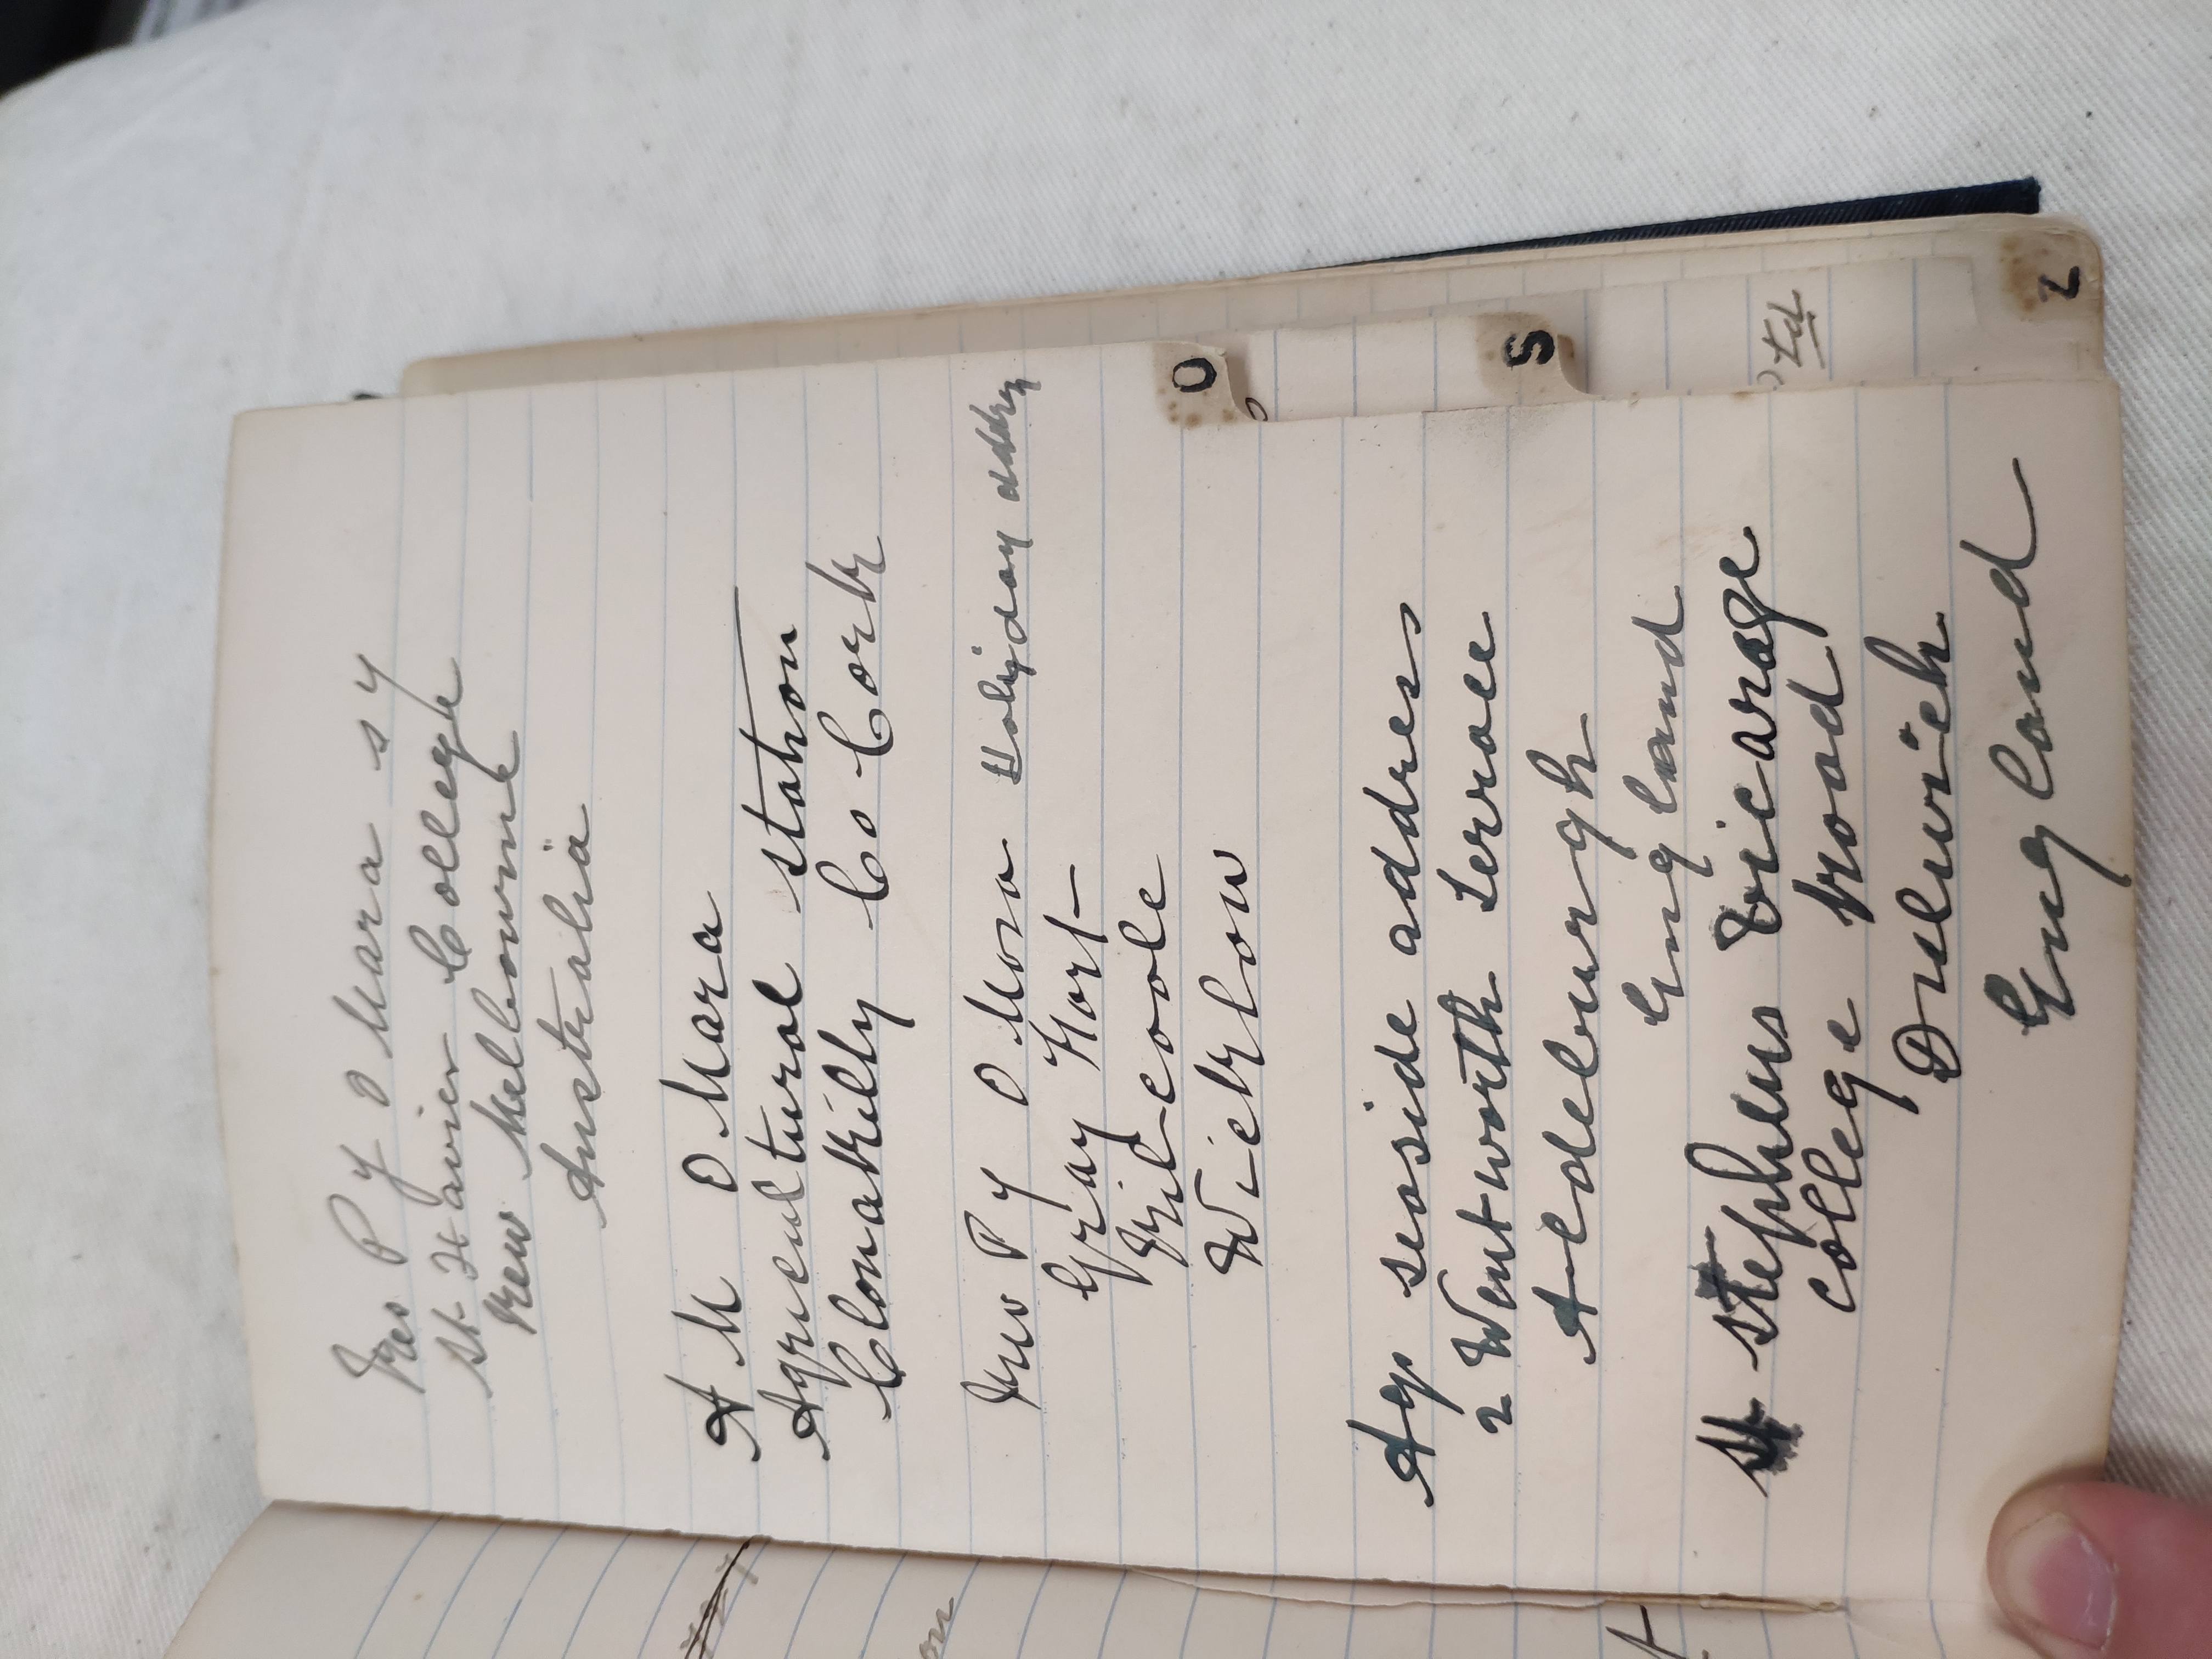 Rev P J O Mara S J
St Xavier College
Kew Melbourne
Australia
A M O Mara
Agricultural Station
Clonakilly Co Cork
Rev P J O Mara Holiday addres
Gray Fort
Kilcoole
Wicklow
O
Ags seaside addres
2 Wentworth Terrace
Aldeburgh
England
S
St Stephens Vicarage
College road
Dulwich
England
td